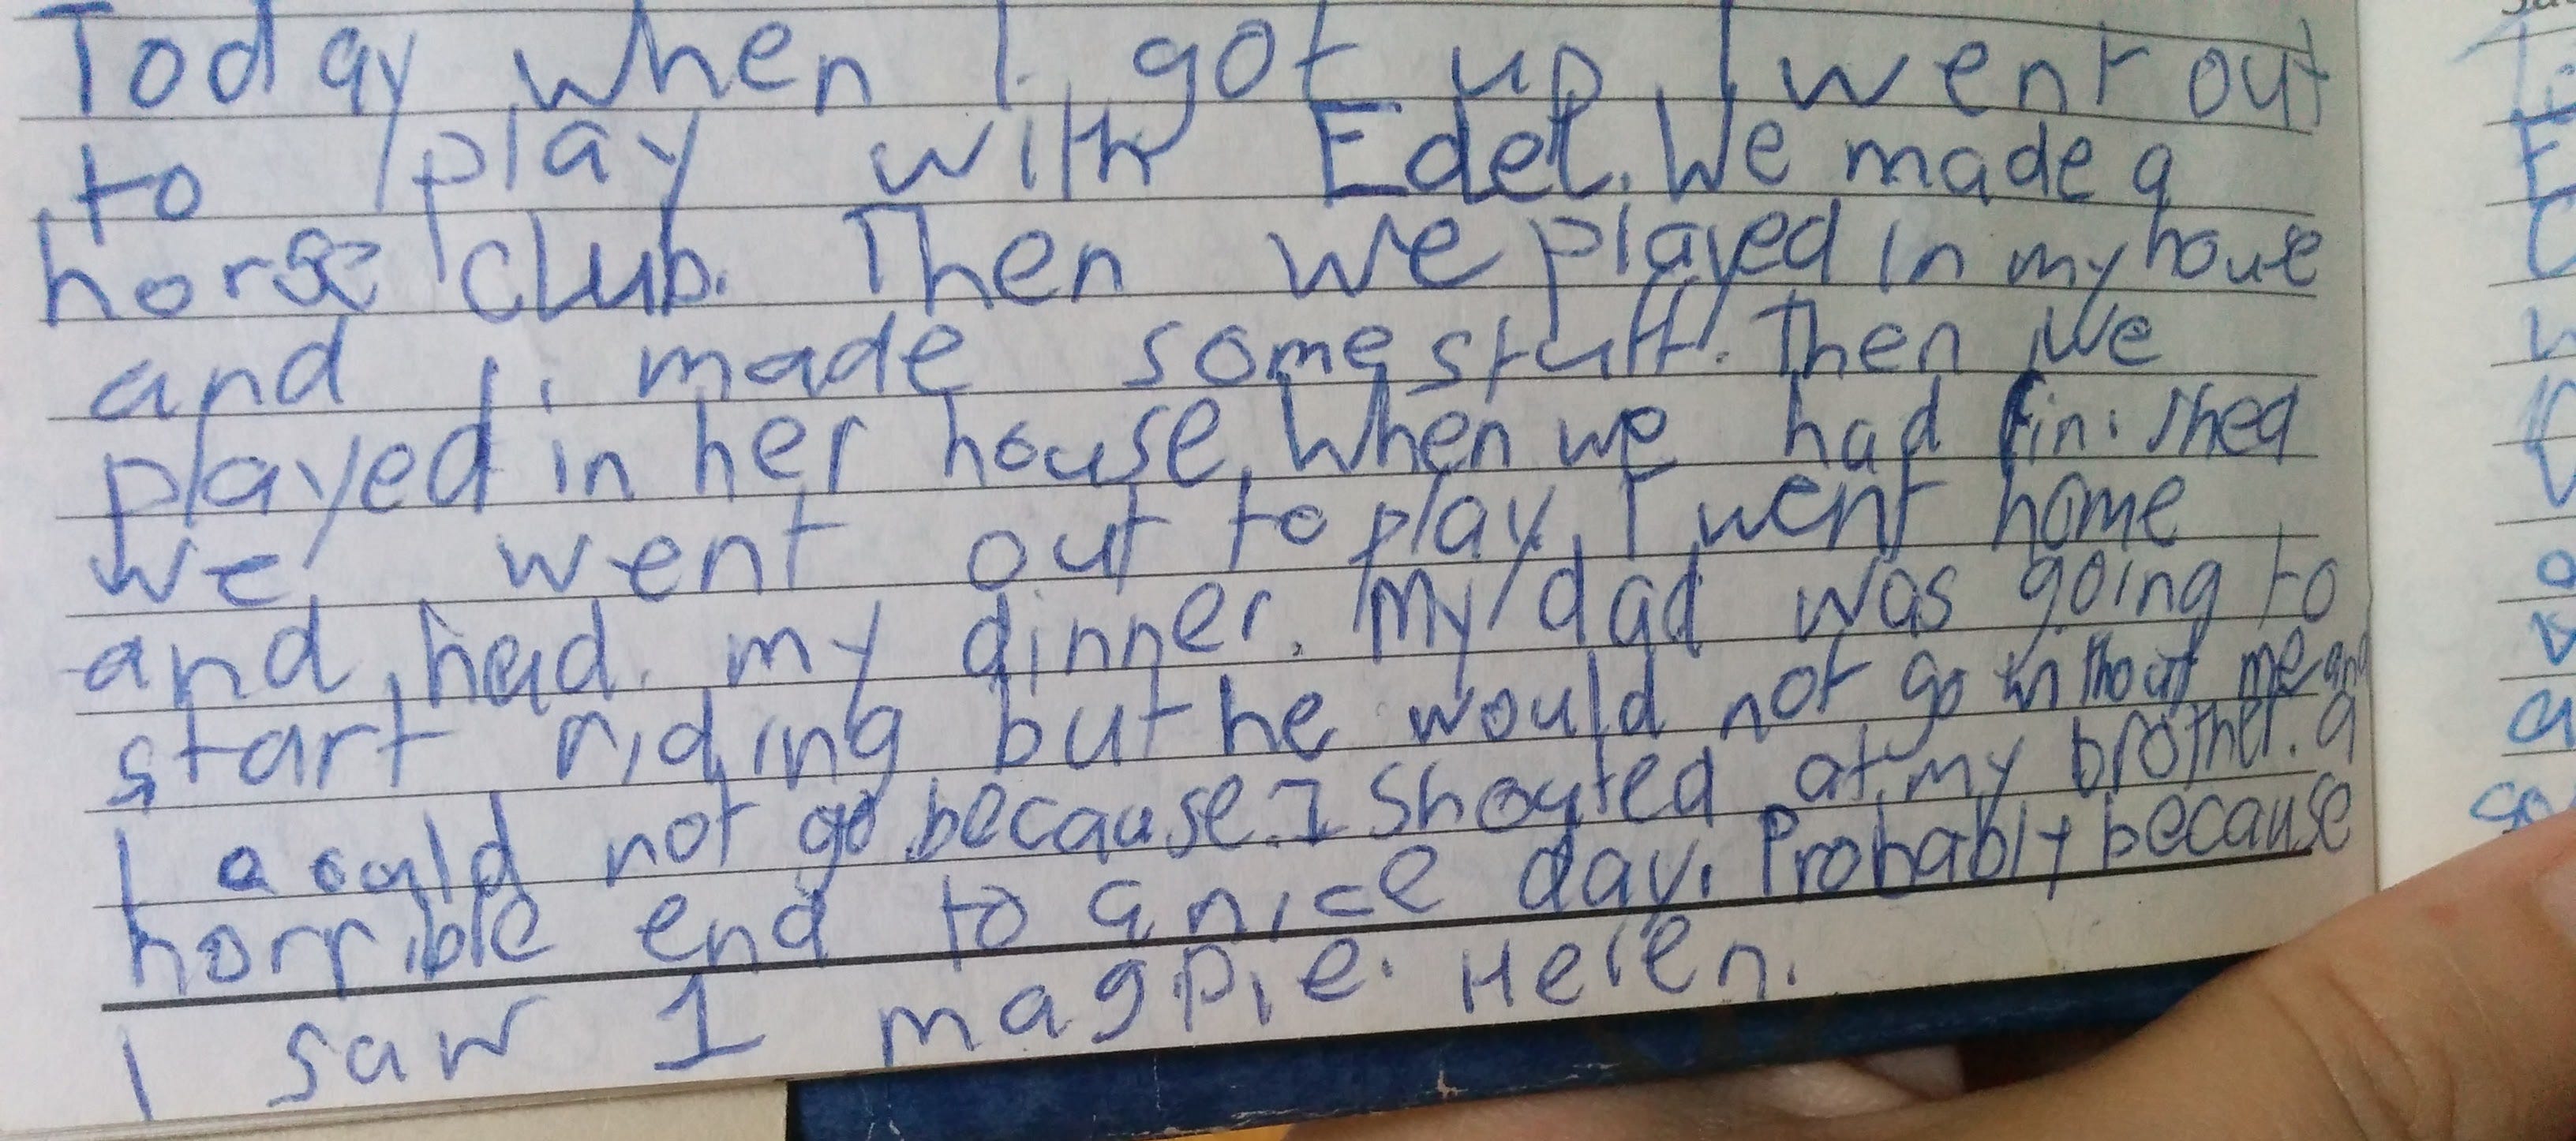 Today when I got up I went out
to play with Edel. We made a
horse club. Then we played in my houe
and I made some stuff. Then we
played in her house. When we had finished
we went out to play. I went home
and had my dinner. My dad was going to
start riding but he would not go without me and
I could not go because I shouted at my brother. a
horrible end to a nice day. Probably because
I saw 1 magpie. Helen.